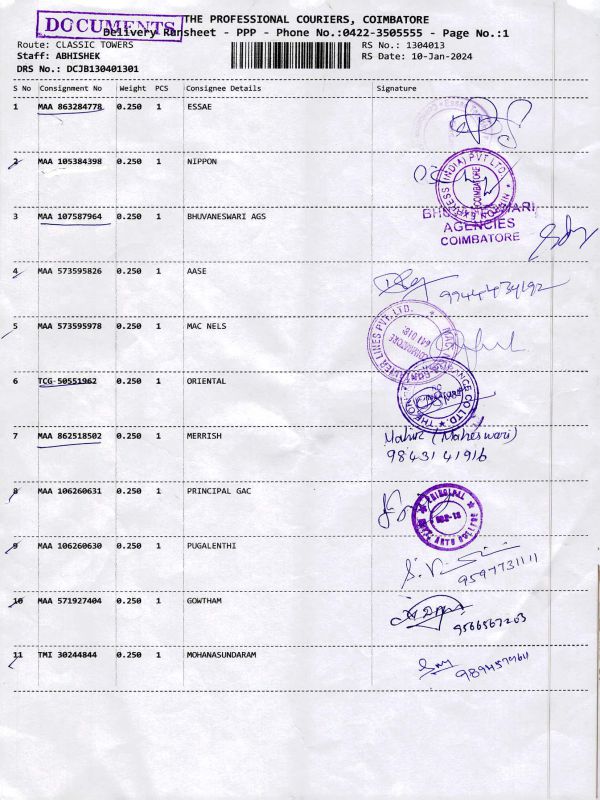 DOCUMENTS
THE PROFESSIONAL COURIERS, COIMBATORE
Delivery Runsheet - PPP - Phone No.:0422-3505555 - Page No.:1
Route: CLASSIC TOWERS RS No.: 1304013
Staff: ABHISHEK RS Date: 10-Jan-2024
DRS No.: DCJB130401301
S No Consignment No Weight PCS Consignee Details Signature
1 MAA 863284778 0.250 1 ESSAE
2 MAA 105384398 0.250 1 NIPPON
(INDIA) PVT LTD
COIMBATORE
3 MAA 107587964 0.250 1 BHUVANESWARI AGS
AGENCIES
COIMBATORE
4 MAA 573595826 0.250 1 AASE
9944434192
5 MAA 573595978 0.250 1 MAC NELS
LINES PVT. LTD.
6 TCG 50551962 0.250 1 ORIENTAL
7 MAA 862518502 0.250 1 MERRISH
(Maheswari)
98431 41916
8 MAA 106260631 0.250 1 PRINCIPAL GAC
PRINCIPAL
ARTS COLLEGE
9 MAA 106260630 0.250 1 PUGALENTHI
9597731111
10 MAA 571927404 0.250 1 GOWTHAM
9566567263
11 TMI 30244844 0.250 1 MOHANASUNDARAM